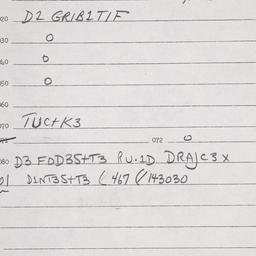 020 D2 GRIB2TIF
030 O
040 O
050 O
060
070 TUCtK3
072 O
080 D3 FOD3StT3 RU.1D DRAJC3X
01 D1NT3StT3 ( 467 (/143030